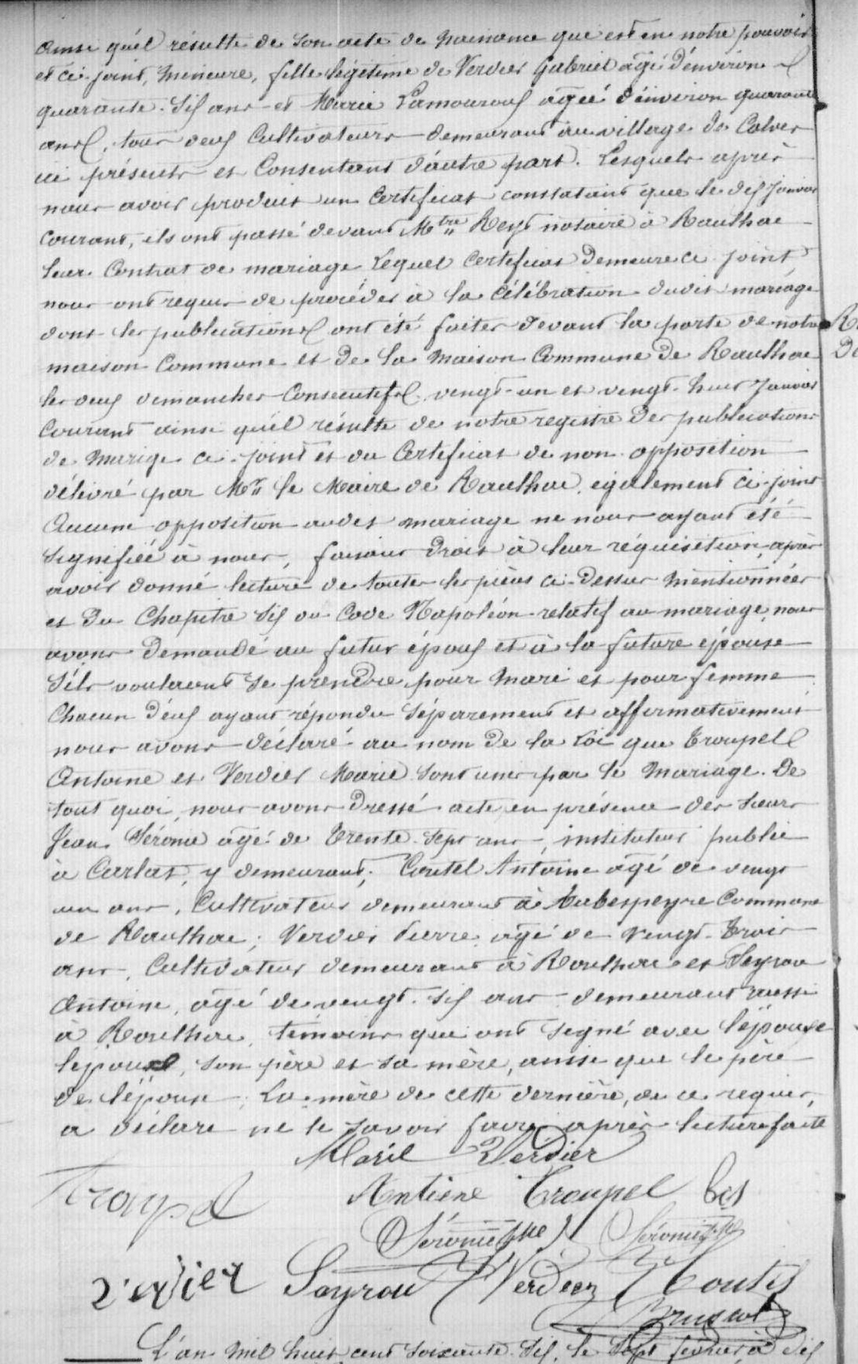 ainsi qu'il résulte de son acte de naissance qui est en notre pouvoir
et ci joint, mineure, fille légitime de Verdier Gabriel âgé d'environ
quarante-six ans et Marie Lamouroux âgée d'environ quarante
ans, tous deux cultivateurs demeurant au village de Calves
ici présents et consentant d'autre part. Lesquels après
nous avoir produit un certificat constatant que le dix janvier
courant, ils ont passé devant Mtre Reyt notaire à Raulhac
leur contrat de mariage lequel certificat demeure ci joint
nous ont requis de procéder à la célébration dudit mariage
dont les publications ont été faites devant la porte de notre
maison commune et de la maison commune de Raulhac
les deux dimanches consécutifs vingt-un et vingt-huit janvier
courant ainsi qu'il résulte de notre registre des publications
de marige ci-joint et du certificat de non opposition
délivré par Mr le Maire de Raulhac, également ci-joint
Aucune opposition audit mariage ne nous ayant été
signifiée à nous, faisant droit à leur réquisition, après
avoir donné lecture de toutes les pièces ci-dessus mentionnées
et du chapitre six du Code Napoléon relatif au mariage, nous
avons demandé au futur époux et à la future épouse
s'ils voulaient se prendre pour mari et pour femme
chacun d'eux ayant répondu séparement et affirmativement
nous avons déclaré au nom de la Loi que Troupel
Antoine et Verdier Marie sont unis par le mariage. De
tout quoi, nous avons dressé acte en présence des sieurs
Jean Sérome âgé de trente-sept ans, instituteur public
à Carlat, y demeurant; Coutel Antoine âgé de vingt
un ans, cultivateur demeurant à Aubespeyre commune
de Raulhac; Verdier Pierre âgé de vingt-trois
ans, cultivateur demeurant à Raulhac et Seyrou
Antoine, âgé de vingt-six ans demeurant aussi
à Raulhac, témoins qui ont signé avec l'épouse
l'époux, son père et sa mère, ainsi que le père
de l'épouse; La mère de cette dernière, de ce requise,
a déclaré ne le savoir faire après lecture faite
Marie Verdier
Troupel Antoine Troupel
Sérome
Verdier Seyrou Verdier
L'an mil huit cent soixante-six, le sept février à dix